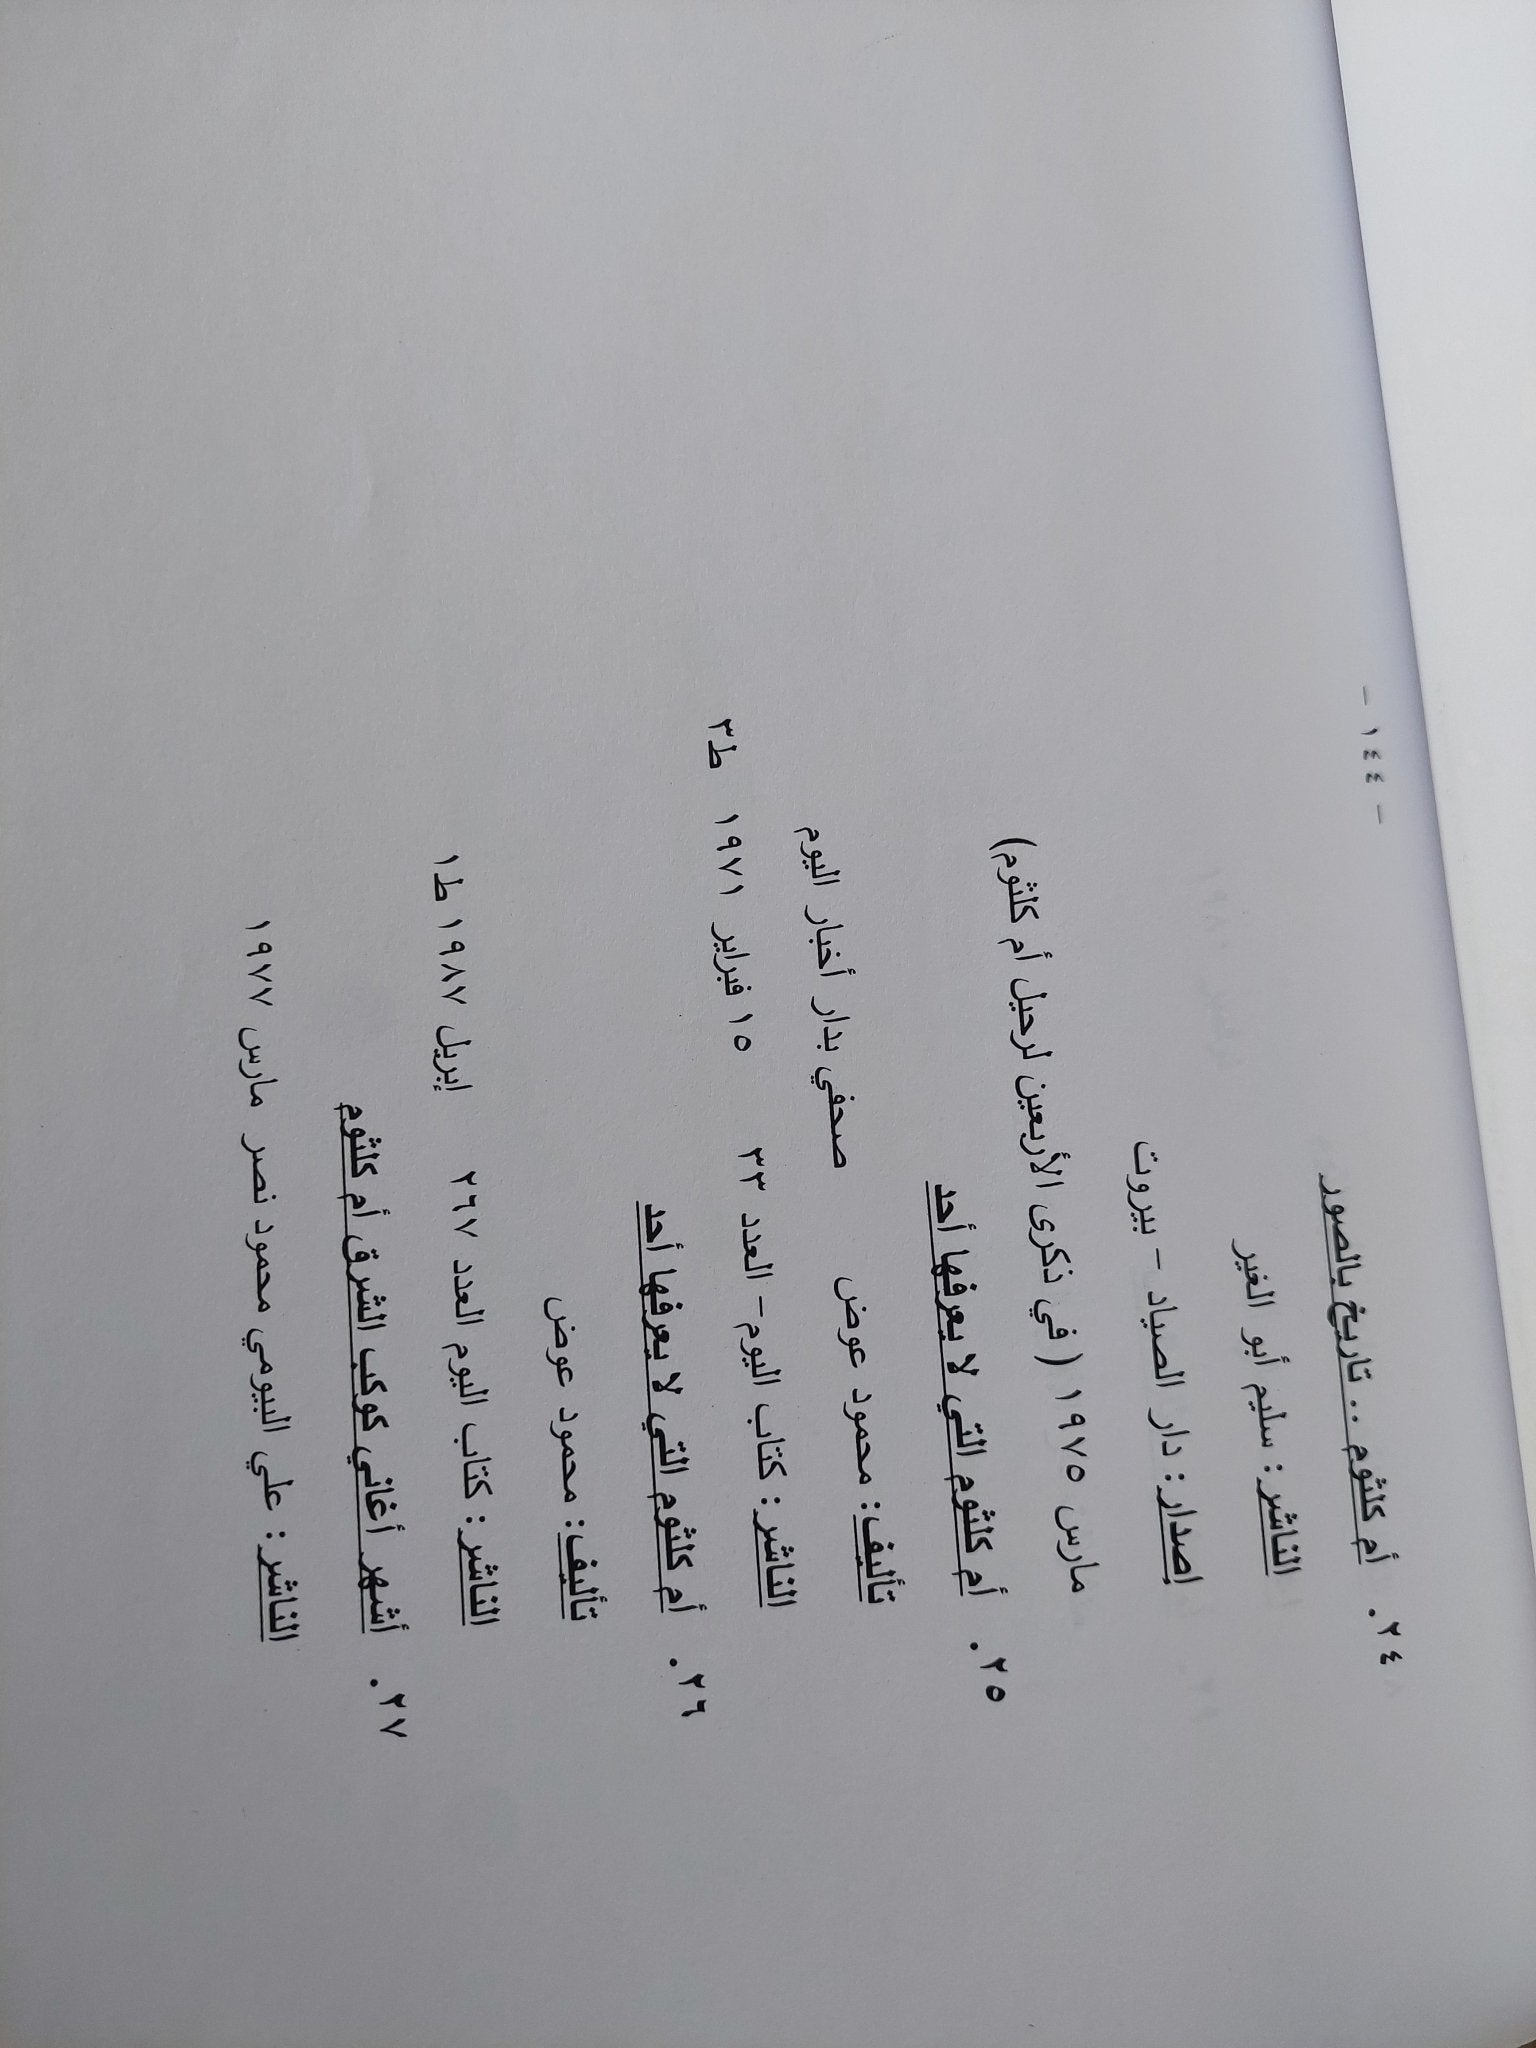 - ١٤٤ -
٢٤. أم كلثوم .. تاريخ بالصور
الناشر: سليم أبو الغير
إصدار: دار الصياد - بيروت
مارس ١٩٧٥ ( في ذكرى الأربعين لرحيل أم كلثوم)
٢٥. أم كلثوم التي لا يعرفها أحد
تأليف: محمود عوض صحفي بدار أخبار اليوم
الناشر: كتاب اليوم- العدد ٣٣ ١٥ فبراير ١٩٧١ ط٣
٢٦. أم كلثوم التي لا يعرفها أحد
تأليف: محمود عوض
الناشر: كتاب اليوم العدد ٢٦٧ إبريل ١٩٨٧ ط١
٢٧. أشهر أغاني كوكب الشرق أم كلثوم
الناشر: علي البيومي محمود نصر مارس ١٩٧٧